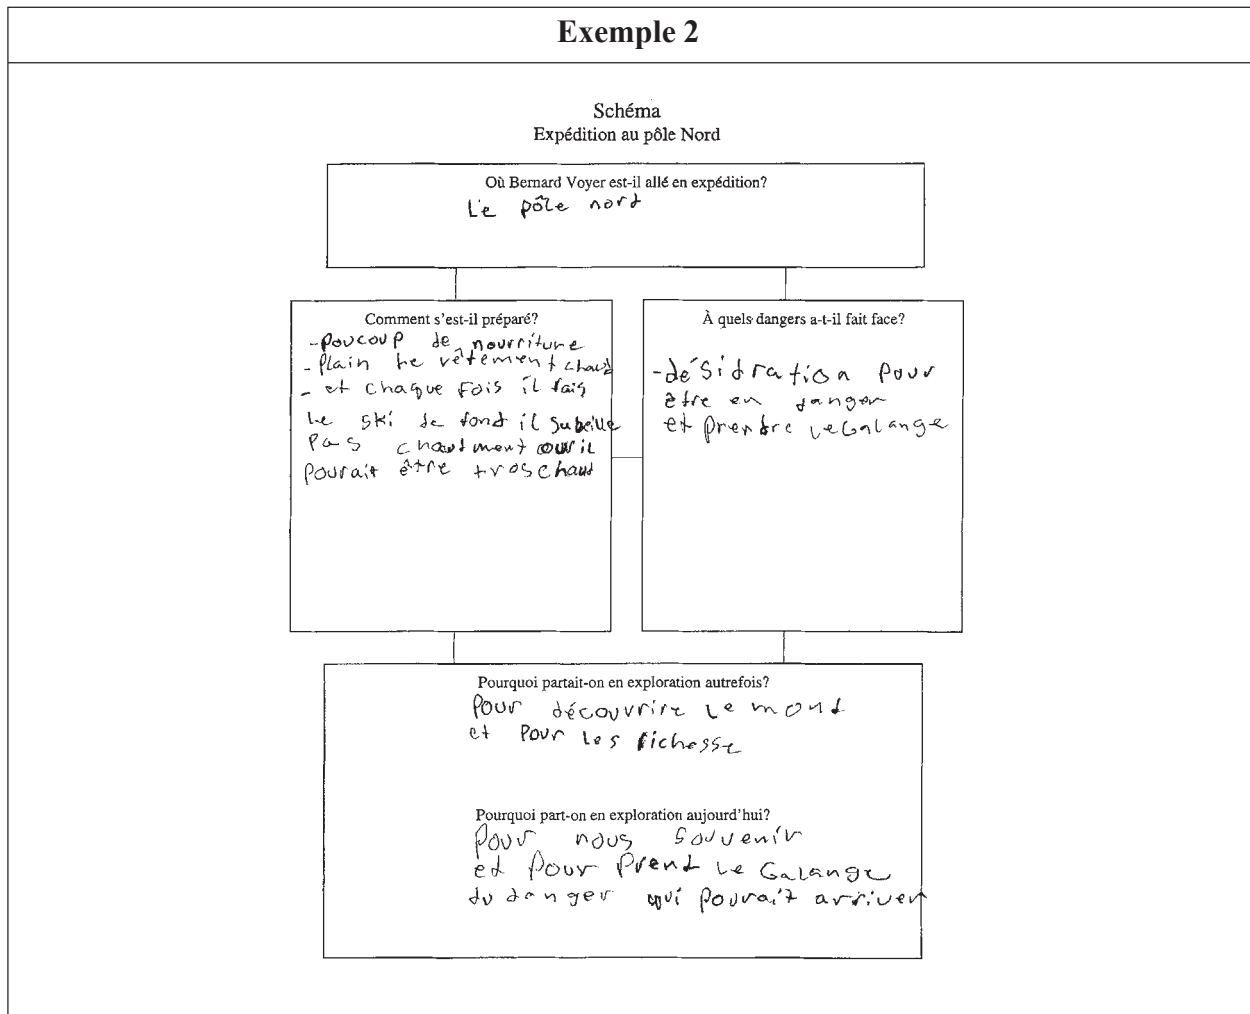 Exemple 2
Schéma
Expédition au pôle Nord
Où Bernard Voyer est-il allé en expédition?
Le pôle nord
Comment s'est-il préparé?
- poucoup de nourriture
- Plain de vêtement chaud
- et chaque fois il fais
le ski de fond il subeille
pas chaudment our il
pourait être tros chaud
À quels dangers a-t-il fait face?
- désidration pour
être en danger
et prendre le Galange
Pourquoi partait-on en exploration autrefois?
Pour découvrire le mond
et pour les richesse
Pourquoi part-on en exploration aujourd'hui?
Pour nous souvenir
et pour Prend le Galange
du danger qui pourait arriver